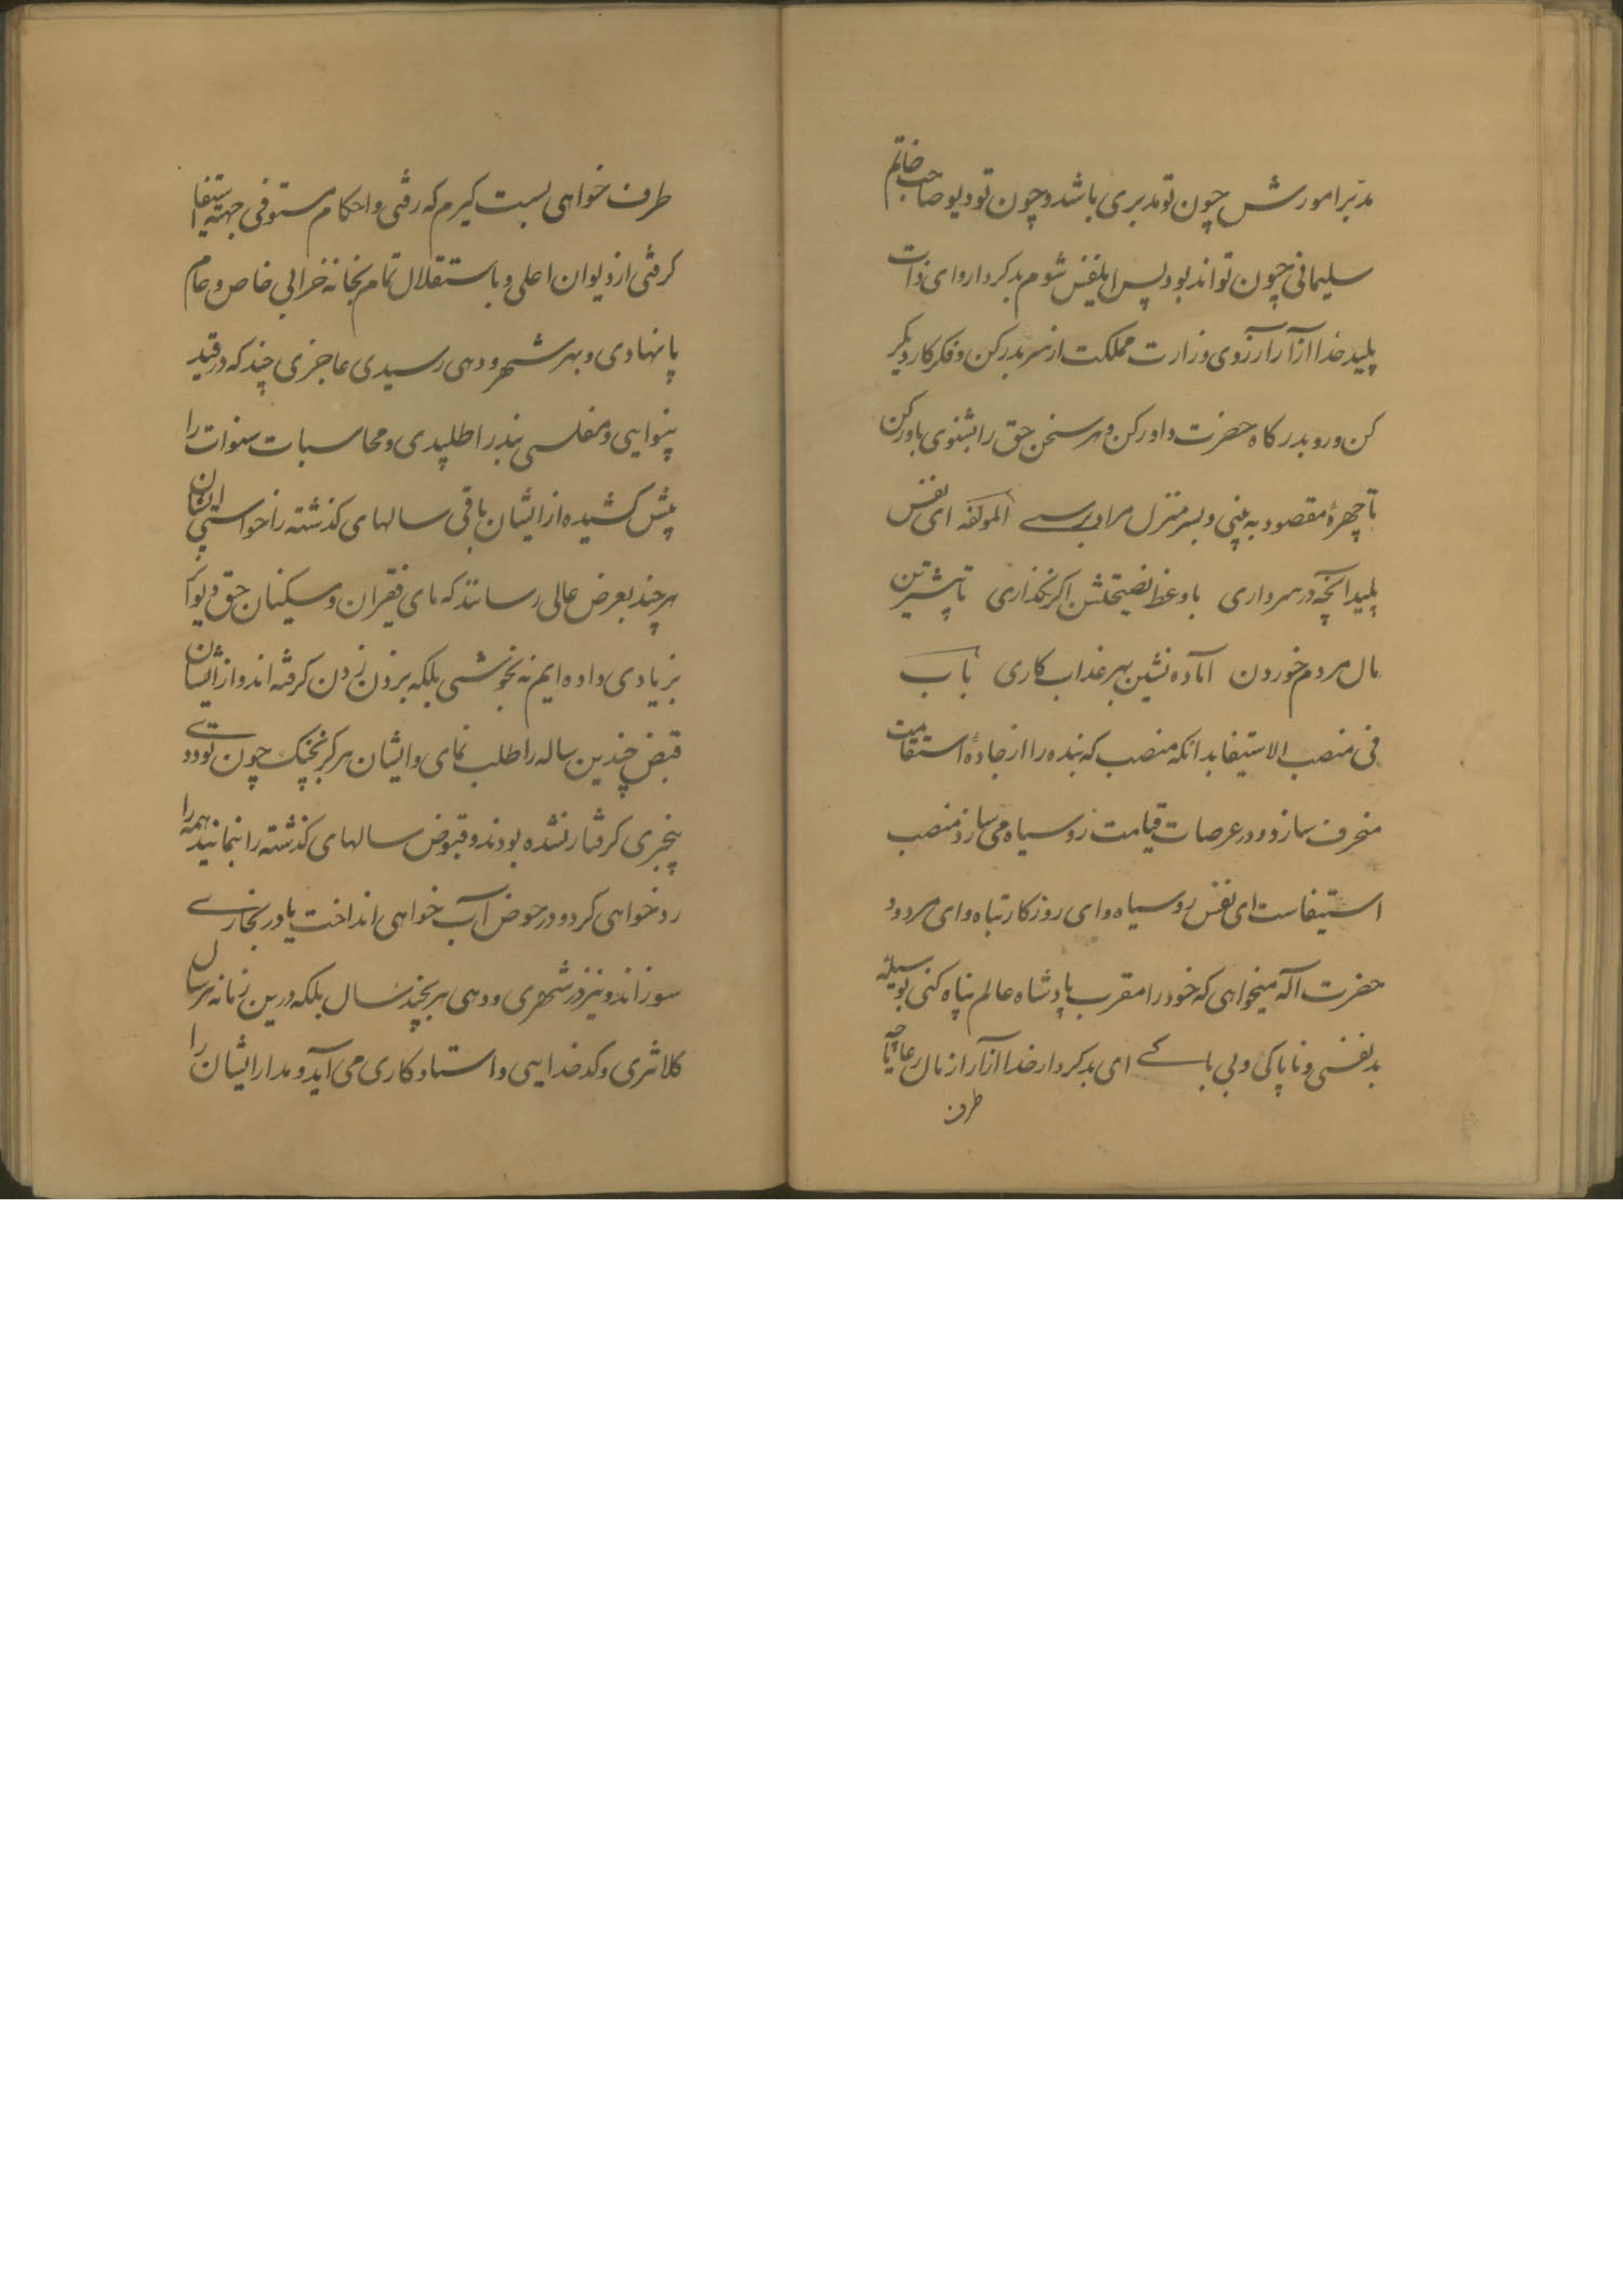 مدبر امورش چون تو مدبری باشد و چون تو دیو صاحب خاتم
سلیمانی چون تواند بود پس ای نفس شوم بدکردار و ای ذات
پلید خدا آزار آرزوی وزارت مملکت از سر بدر کن و فکر کار دیگر
کن و رو بدرگاه حضرت داور کن و هر سخن حق را بشنوی باور کن
تا چهرهٔ مقصود به بینی و بسر منزل مراد برسی المولفه ای نفس
پلید آنچه در سر داری با وعظ نصیحتش اگر نگذاری تا پیشترین
مال مردم خوردن آماده نشین بهر عذاب کاری باب
فی منصب الاستیفا بدانکه منصب که بنده را از جادهٔ استقامت
منحرف سازد و در عرصات قیامت رو سیاه می سازد منصب
استیفاست ای نفس رو سیاه و ای روزکار تباه و ای مردود
حضرت اله میخواهی که خود را مقرب پادشاه عالم پناه کنی بوسیله
بدنفسی و ناپاکی و بی باکی ای بدکردار خدا آزار از مال رعایا چه
طرف
طرف خواهی بست کیرم که رفتی و احکام مستوفی جهته استیفا
کرفتی از دیوان اعلی و باستقلال تمام بخانه خرابی خاص و عام
پا نهادی و بهر شهر و دهی رسیدی عاجزی چند که در قید
بینوایی و مفلسی بندر اطلبیدی و محاسبات سنوات را
پیش کشیده از ایشان باقی سالهای کذشته را خواستی ایشان
هر چند بعرض عالی رسانند که مای فقیران و مسکینان حق دیوان
بزیادی داده ایم نه بخوشی بلکه بزدن زدن کرفته اند و از ایشان
قبض چندین ساله را طلب نمای و ایشان هرکز بچنک چون تو ددی
بیخبری کرفتار نشده بودند و قبوض سالهای کذشته را بنمایند همه را
رد خواهی کرد و در حوض آب خواهی انداخت یا در بخاری
سوزاند و نیز در شهری و دهی بهر چند سال بلکه درین زمانه هر سال
کلانتری و کدخدایی و استاد کاری می آید و مدار ایشان را